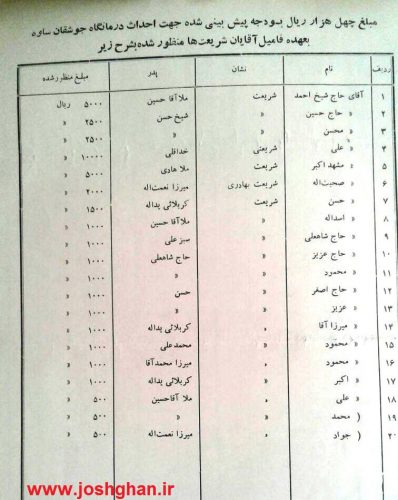 مبلغ چهل هزار ریال بودجه پیش بینی شده جهت احداث درمانگاه جوشقان ساوه
بعهده فامیل آقایان شریعت‌ها منظور شده بشرح زیر
ردیف نام نشان پدر مبلغ منظر شده
۱ آقای حاج شیخ احمد شریعت ملا آقا حسین ۵۰۰۰ ریال
۲ » حاج حسین » شیخ حسن ۲۵۰۰ »
۳ » محسن » » ۲۵۰۰ »
۴ » علی شریعتی خداقلی ۱۰۰۰۰ »
۵ » مشهد اکبر شریعت ملا هادی ۵۰۰۰ »
۶ » صحبت‌اله شریعت بهادری میرزا نعمت‌اله ۲۰۰۰ »
۷ » حسن شریعت کربلائی یداله ۱۵۰۰ »
۸ » اسداله » ملا آقا حسین ۱۰۰۰ »
۹ » حاج شاهعلی » سبز علی ۱۰۰۰ »
۱۰ » حاج عزیز » حاج شاهعلی ۱۰۰۰ »
۱۱ » محمود » » ۱۰۰۰ »
۱۲ » حاج اصغر » حسن ۱۰۰۰ »
۱۳ » عزیز » » ۱۰۰۰ »
۱۴ » میرزا آقا » کربلائی یداله ۱۰۰۰ »
۱۵ » محمود » محمدعلی ۱۰۰۰ »
۱۶ » محمود » میرزا محمدآقا ۱۰۰۰ »
۱۷ » اکبر » کربلائی یداله ۱۰۰۰ »
۱۸ » علی » ملا آقاحسین ۵۰۰ »
۱۹ ( محمد » » ۵۰۰ »
۲۰ ( جواد » میرزا نعمت‌اله ۵۰۰ »
www.joshghan.ir